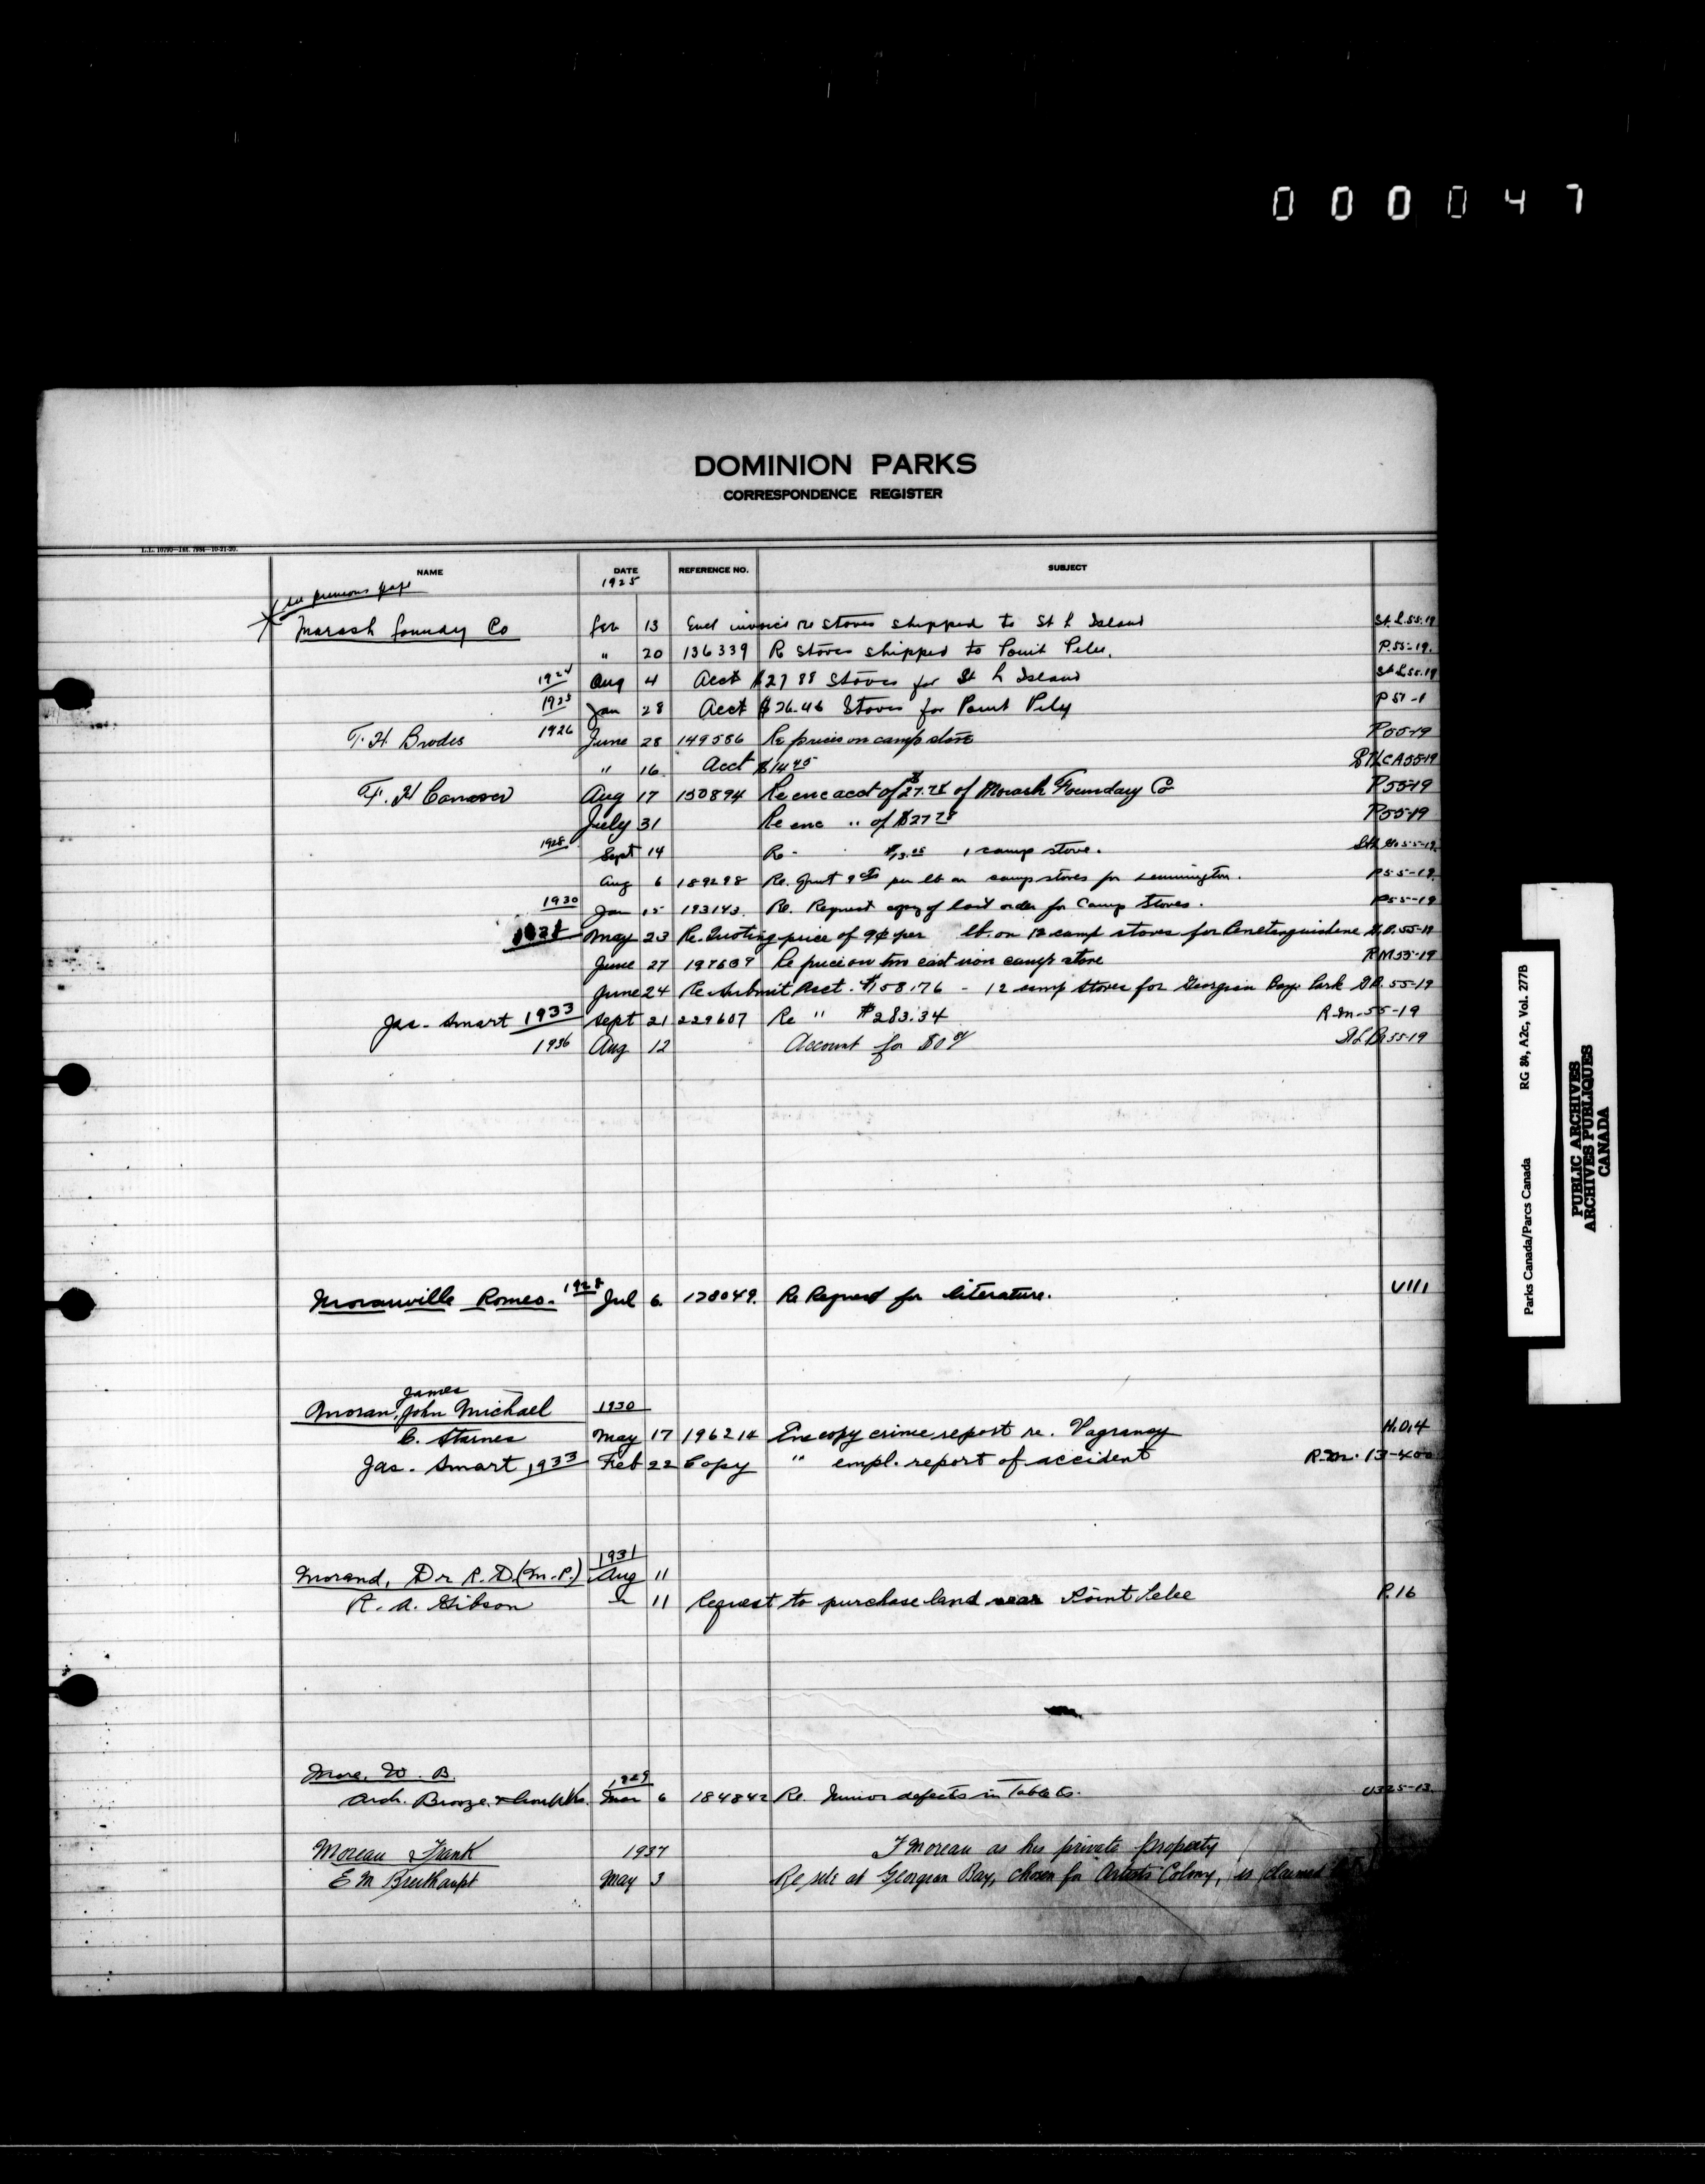 0 0 0 0 4 7
DOMINION PARKS
CORRESPONDENCE REGISTER
L.L. 10795—1M. 7984—10-21-20.
NAME DATE REFERENCE NO. SUBJECT
1925
See previous page
Morash Foundry Co Jan 13 Encl invoice re stoves shipped to St L Island St.L.55.19
" 20 136339 Re stoves shipped to Point Pelee. P.55-19.
1924 Aug 4 Acct $27 88 Stoves for St L Island St L 55.19
1925 Jan 28 Acct $26.46 Stoves for Point Pely P 51-1
1926 June 28 149586 Re prices on camp stove P 55-19
" 16 Acct $14 25 55-19
F. H. Conover Aug 17 150894 Re enc acct of $27.78 of Morash Foundary Co P 55-19
July 31 Re enc " of $27 78 P 55-19
1928 Sept 14 Re 1 camp stove. 55-19.
Aug 6 189298 Re. Quot 9 cts per lb on camp stoves for Leamington. P55-19.
1930 Jan 15 193143. Re. Request copy of last order for Camp Stoves. P55-19
May 23 Re. Quoting price of 9¢ per lb. on 12 camp stoves for Penetanguishene G.B. 55-19
June 27 197609 Re price on cast iron camp stove RM 55-19
June 24 Re Submit Acct. $158.76 - 12 camp stoves for Georgian Bay Park G.B. 55-19
Jas. Smart 1933 Sept 21 229607 Re " $283.34 R.M.-55-19
1936 Aug 12 Account for St L 55-19
Moranville Romeo. 1928 Jul 6. 128049. Re Request for literature. U111
James
Moran, John Michael 1930
C. Starnes May 17 196214 Enc copy crime report re. Vagrancy H.O.4
Jas. Smart 1933 Feb 22 Copy " empl. report of accident R.M. 13-400
1931
Morand, Dr R. D. (M.P.) Aug 11
R. A. Gibson " 11 Request to purchase land near Point Pelee P.16
More, W. B. 1929
Arch. Bronze & Iron Wks. Mar 6 184842 Re. Junior defects in Tablets. U325-13.
Moreau, Frank 1937 F Moreau as his private property
E M Breithaupt May 3 Re site at Georgian Bay, chosen for Artists Colony, is claimed
Parks Canada/Parcs Canada RG 84, A2c, Vol. 277B
PUBLIC ARCHIVES
ARCHIVES PUBLIQUES
CANADA